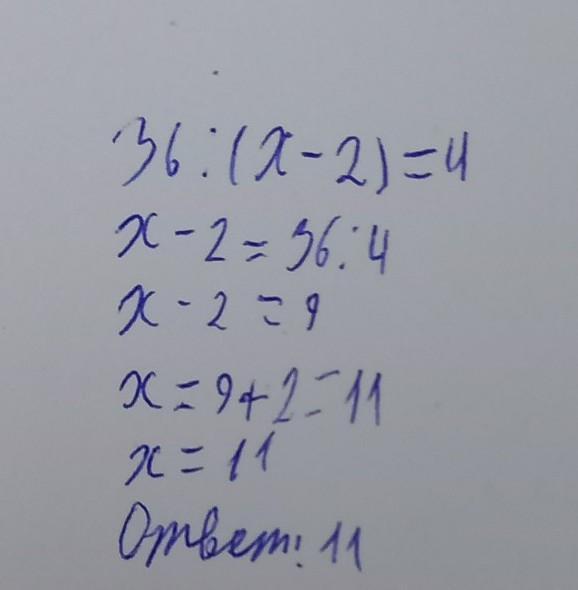 36:(x-2)=4
x-2=36:4
x-2=9
x=9+2=11
x=11
Ответ: 11